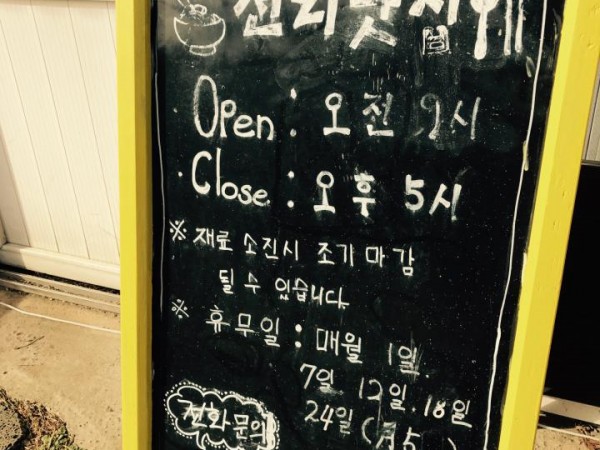 Open : 오전 9시
Close : 오후 5시
※ 재료 소진시 조기 마감
될 수 있습니다.
※ 휴무일 : 매월 1일.
7일. 12일. 18일
24일 (월5
전화문의